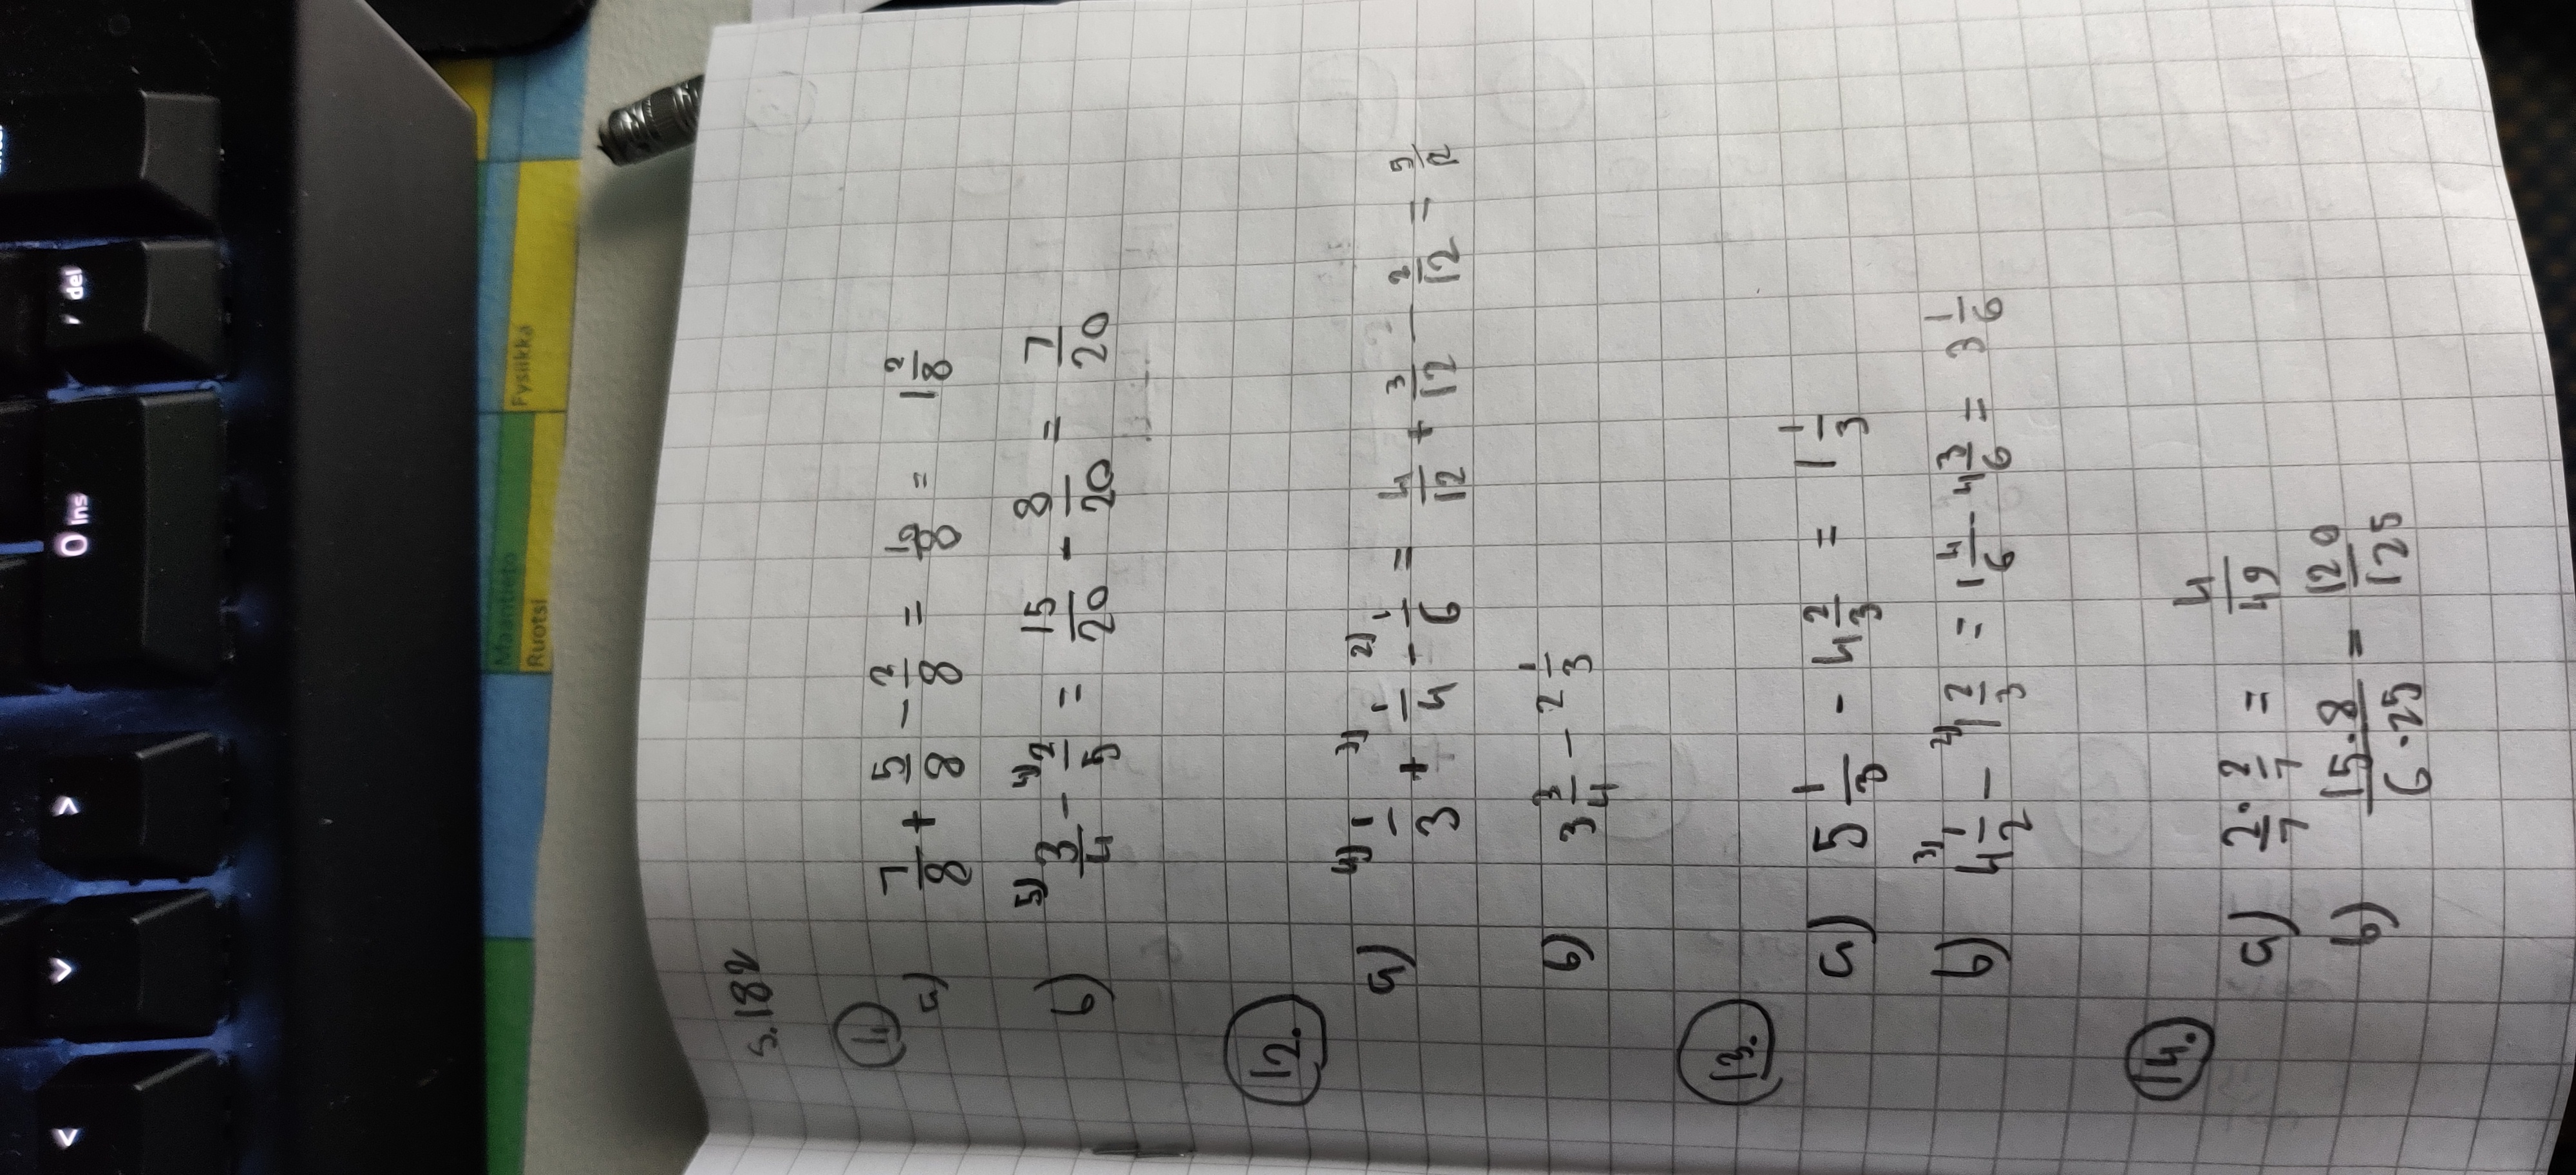 s.182
11.
a) 7/8 + 5/8 - 2/8 = 10/8 = 1 2/8
b) 5) 3/4 - 4) 2/5 = 15/20 - 8/20 = 7/20
12.
a) 4) 1/3 + 3) 1/4 - 2) 1/6 = 4/12 + 3/12 - 2/12 = 5/12
b) 3 3/4 - 2 1/3
13.
a) 5 1/3 - 4 2/3 = 1 1/3
b) 3) 4 1/2 - 2) 1 2/3 = 1 4/6 - 4 3/6 = 3 1/6
14.
a) 2/7 · 2/7 = 4/49
b) 15·8/6·25 = 120/125
0 ins
, del
<
v
>
Maantieto
Ruotsi
Fysiikka